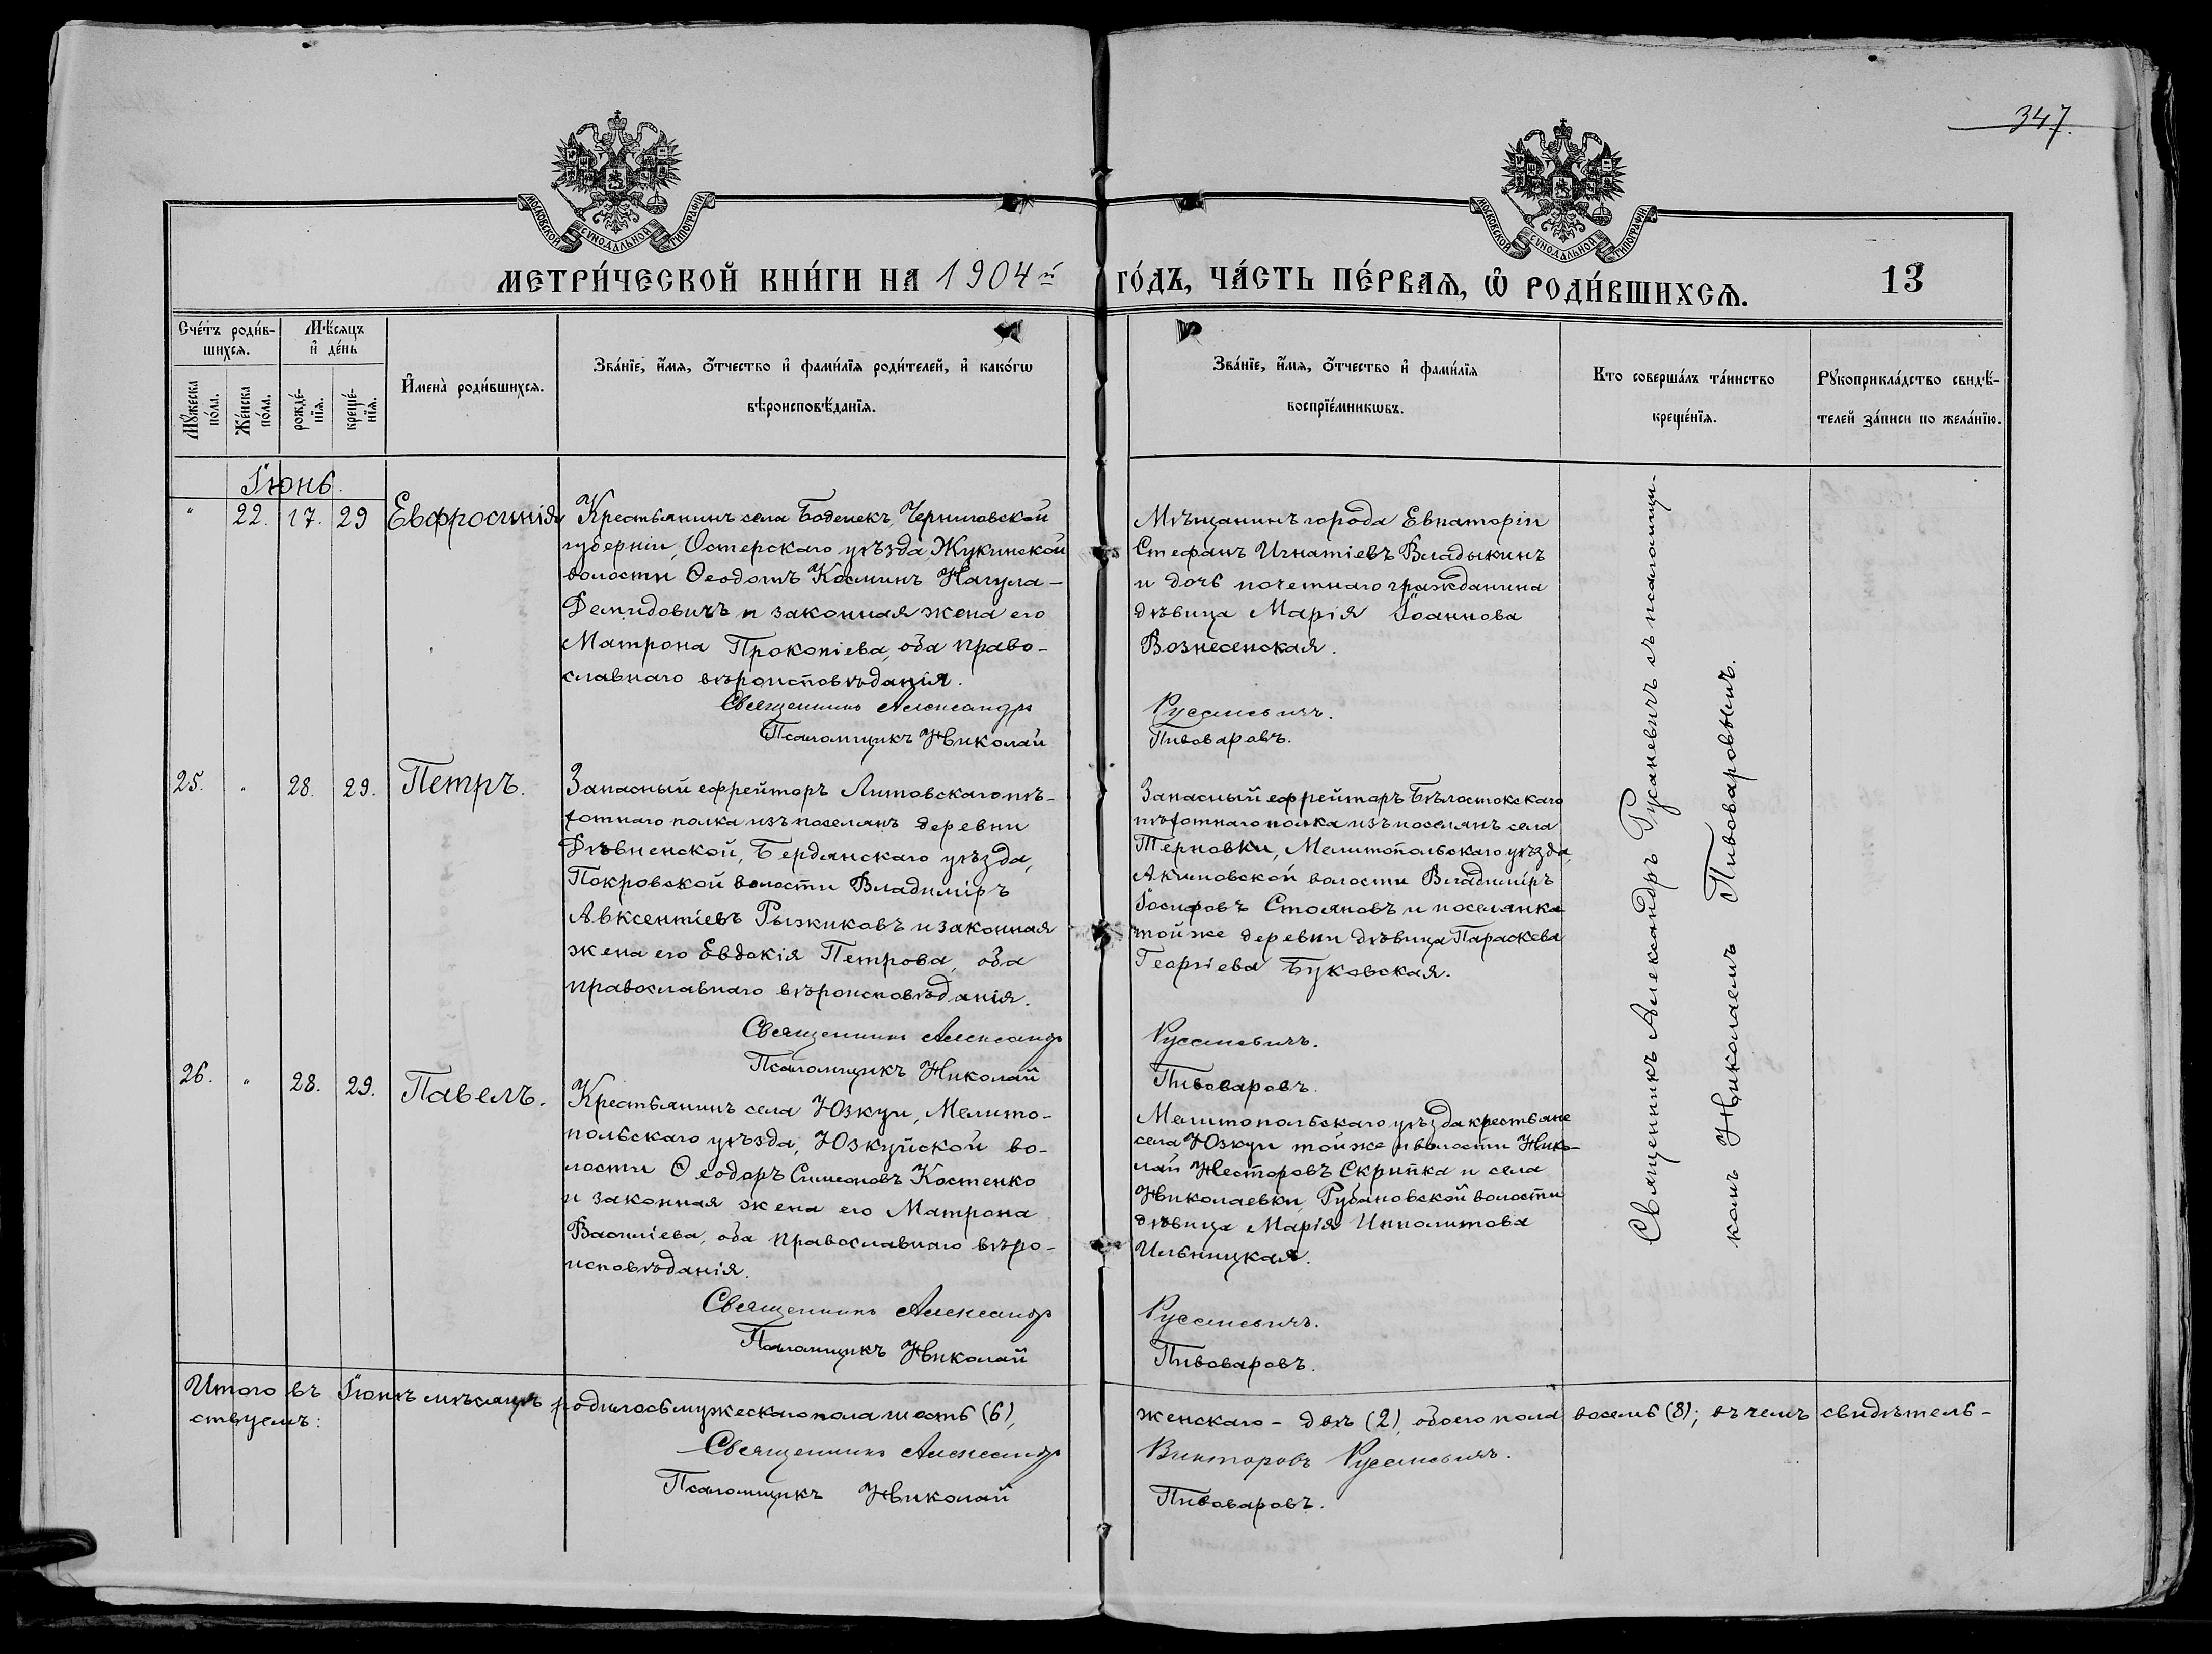 347.
МОСКОВСКОЙ СѴНОДАЛЬНОЙ ТИПОГРАФІИ
МОСКОВСКОЙ СѴНОДАЛЬНОЙ ТИПОГРАФІИ
МЕТРИ́ЧЕСКОЙ КНИ́ГИ НА 1904й ГО́ДЪ, ЧА́СТЬ ПЕ́РВАѦ, Ѽ РОДИ́ВШИХСѦ. 13
Сче́тъ роди́в-
шихсѧ.
Мꙋжеска по́ла.
Же́нска по́ла.
Мѣ́сѧцъ
и҆ де́нь
рожде́-
нїѧ.
креще́-
нїѧ.
И҆мена̀ роди́вшихсѧ.
Зва́нїе, и҆́мѧ, ѻ҆́тчество и҆ фами́лїѧ роди́телей, и҆ како́гѡ
вѣроисповѣ́данїѧ.
Зва́нїе, и҆́мѧ, ѻ҆́тчество и҆ фами́лїѧ
воспрїе́мникѡвъ.
Кто соверша́лъ та́инство
креще́нїѧ.
Рꙋкоприкла́дство свидѣ́-
телей за́писи по жела́нїю.
Іюнь.
" 22. 17. 29 Евфросинія
Крестьянинъ села Боденекъ, Черниговской
губерніи, Остерскаго уѣзда, Жукинской
волости Ѳеодотъ Косминъ Нагула-
Демидовичъ и законная жена его
Матрона Прокопіева, оба право-
славнаго вѣроисповѣданія.
Священникъ Александръ
Псаломщикъ Николай
Мѣщанинъ города Евпаторіи
Стефанъ Игнатіевъ Владыкинъ
и дочь почетнаго гражданина
дѣвица Марія Іоаннова
Вознесенская.
Русаневичъ.
Пивоваровъ.
25. " 28. 29. Петръ.
Запасный ефрейторъ Литовскаго пѣ-
хотнаго полка изъ поселянъ деревни
Дѣвненской, Бердянскаго уѣзда,
Покровской волости Владиміръ
Авксентіевъ Рыжиковъ и законная
жена его Евдокія Петрова, оба
православнаго вѣроисповѣданія.
Священникъ Александръ
Псаломщикъ Николай
Запасный ефрейторъ Бѣлостокскаго
пѣхотнаго полка изъ поселянъ села
Терновки, Мелитопольскаго уѣзда,
Акимовской волости Владиміръ
Іосифовъ Стояновъ и поселянка
той же деревни дѣвица Параскева
Георгіева Буковская.
Русаневичъ.
Пивоваровъ.
26. " 28. 29. Павелъ.
Крестьянинъ села Юзкуи, Мелито-
польскаго уѣзда, Юзкуйской во-
лости Ѳеодоръ Симеоновъ Костенко
и законная жена его Матрона
Василіева, оба православнаго вѣро-
исповѣданія.
Священникъ Александръ
Псаломщикъ Николай
Мелитопольскаго уѣзда крестьяне
села Юзкуи той же волости Нико-
лай Несторовъ Скрипка и села
Николаевки, Рубановской волости
дѣвица Марія Ипполитова
Ильницкая.
Русаневичъ.
Пивоваровъ.
Священникъ Александръ Русаневичъ съ псаломщи-
комъ Николаемъ Пивоваровымъ.
Итого въ Іюнѣ мѣсяцѣ родилось мужескаго пола шесть (6), женскаго - двѣ (2), обоего пола восемь (8); въ чемъ свидѣтель-
ствуемъ:
Священникъ Александръ Викторовъ Русаневичъ.
Псаломщикъ Николай Пивоваровъ.